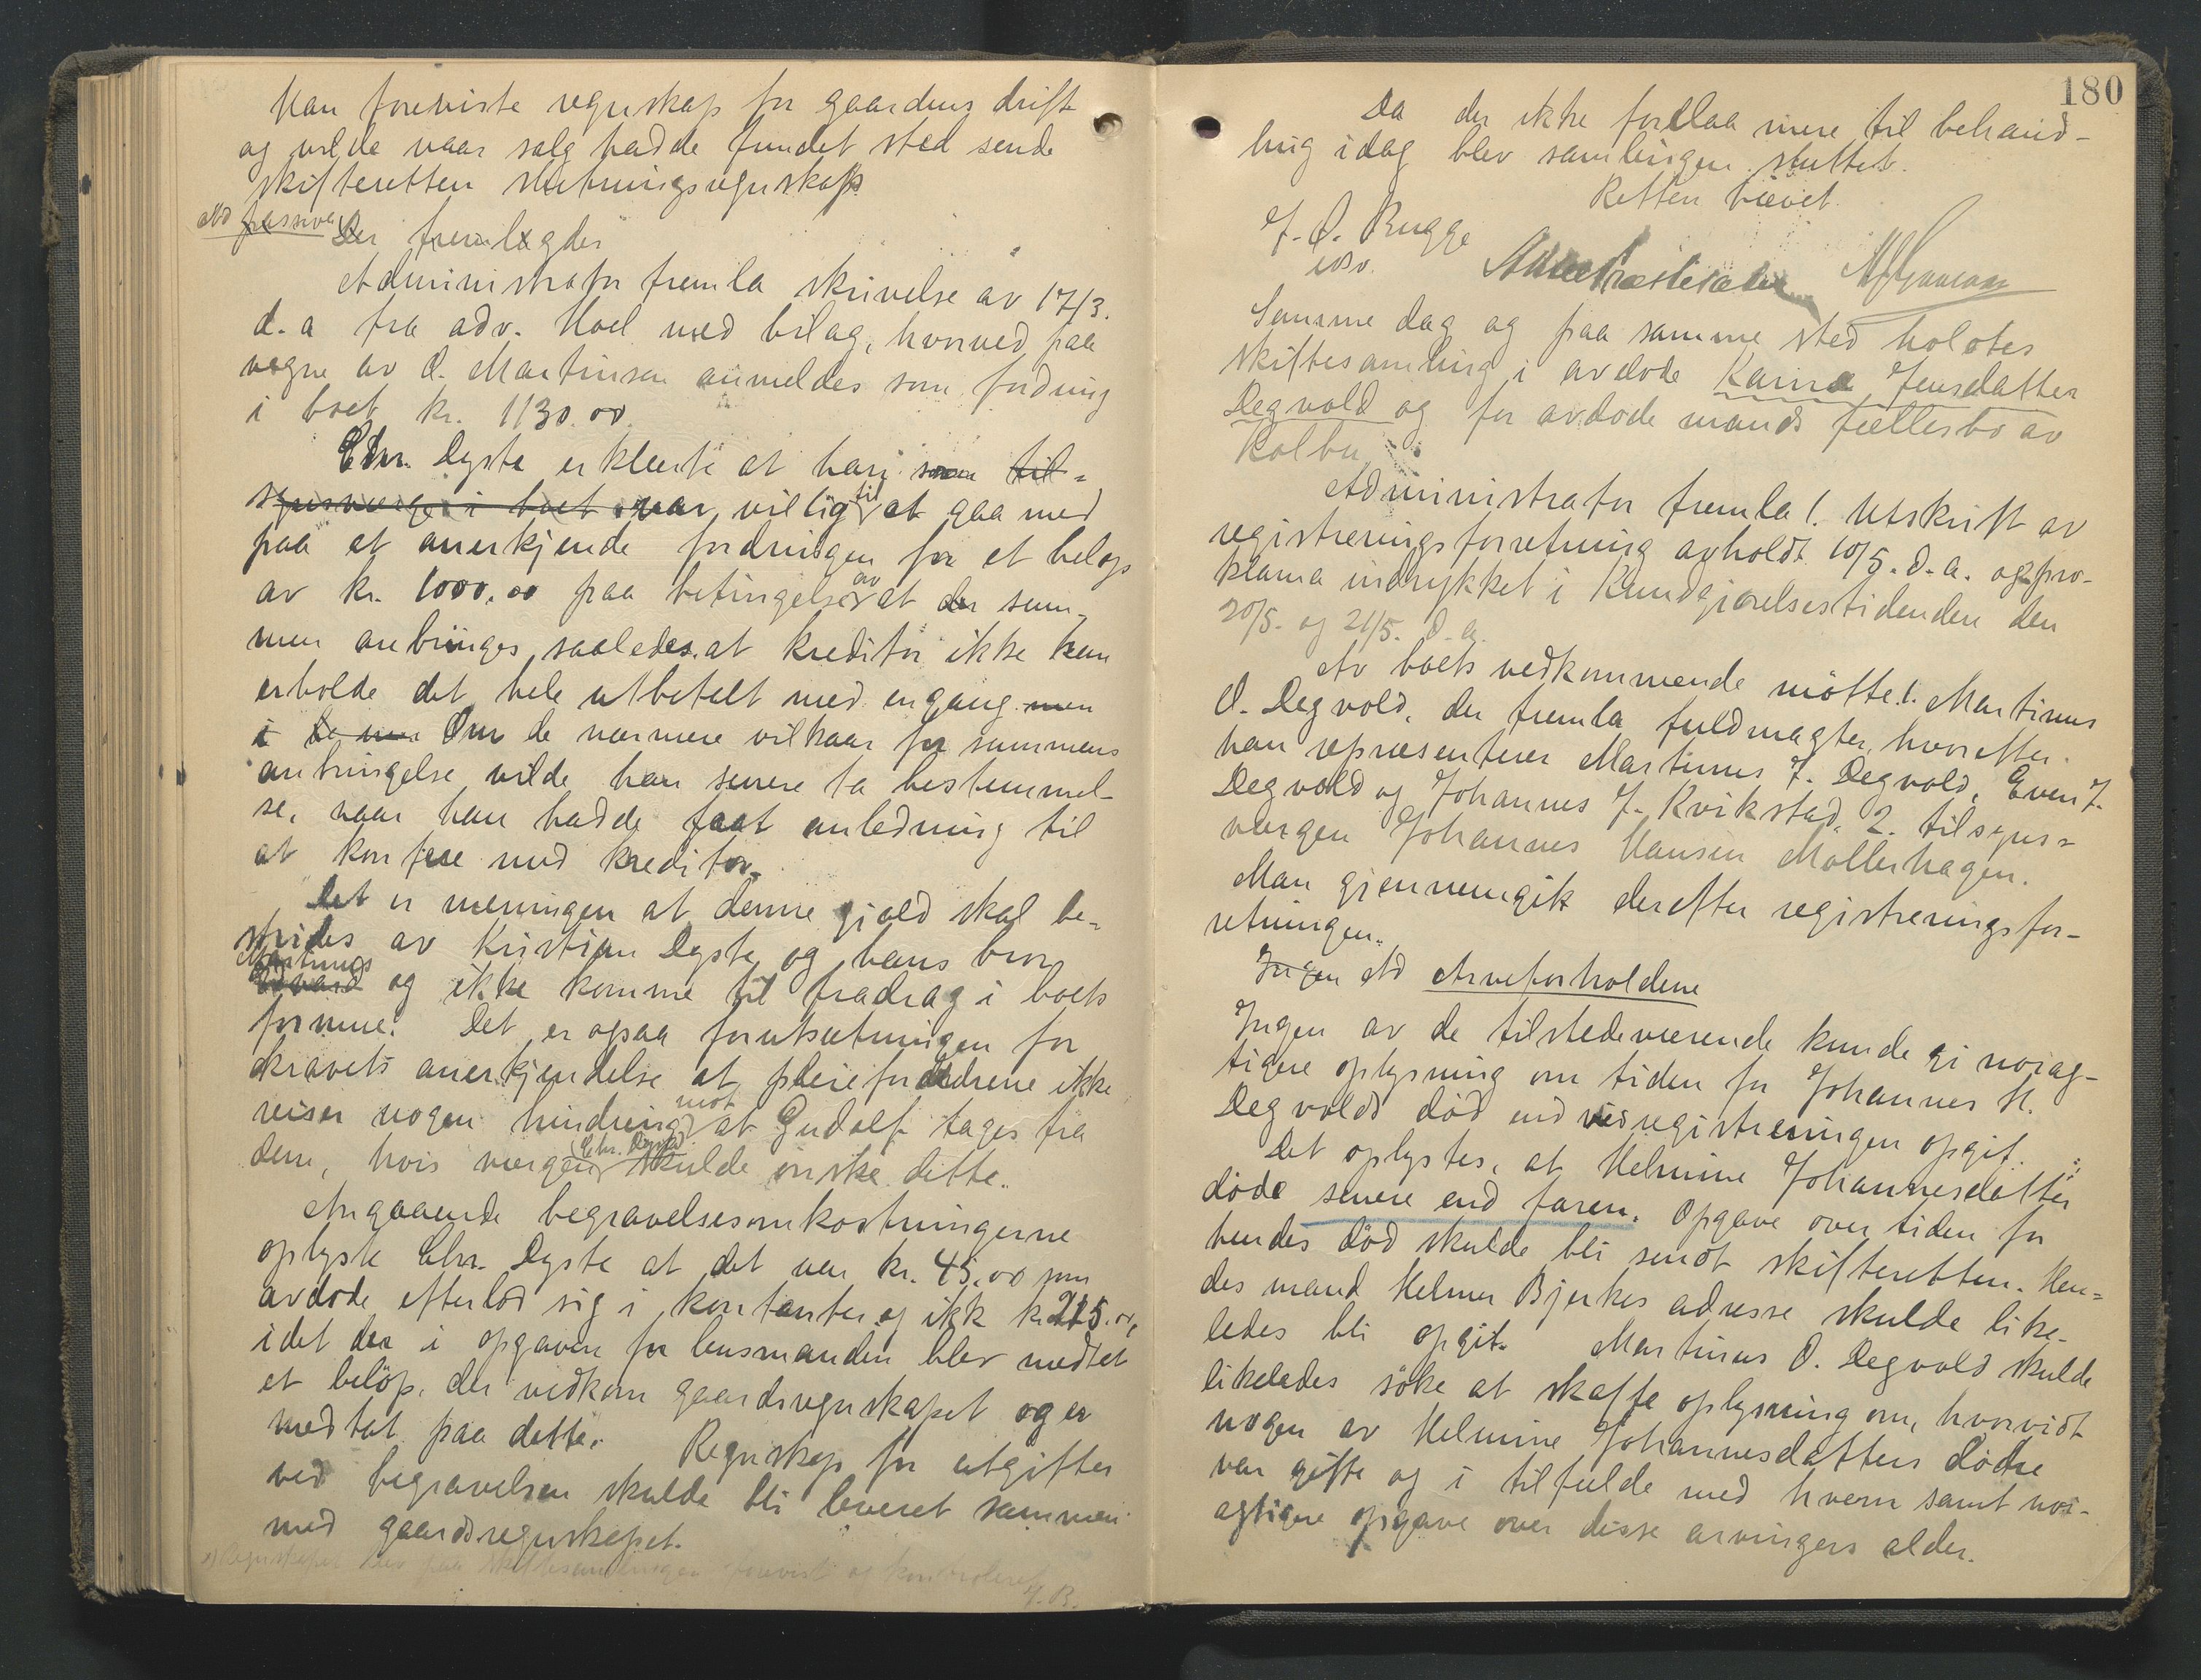 Han foreviste regnskap for gaardens drift
og vilde naar salg hadde fundet sted sende
skifteretten slutningsregnskap.
Ad passiva Der fremlagdes
Administrator fremla skrivelse av 17/3.
d.a fra adv. Hoel med bilag, hvorved paa
vegne av O. Martinsen anmeldes som fordring
i boet kr. 1130.00
Chr. Dyste erklærte at han som til-
synsværge i boet var villig til at gaa med
paa at anerkjende fordringen for et beløp
av kr. 1000,00 paa betingelse av at den sum-
men anbringes saaledes at kreditor ikke kan
erholde det hele utbetalt med engang men
i Om de nærmere vilkaar for summens
anbringelse vilde han senere ta bestemmel-
se, naar han hadde faat anledning til
at konfere med kreditor.
Det er meningen at denne gjæld skal be-
strides av Kristian Dyste og hans bror
Martinus
Edvard og ikke komme til fradrag i boets
formue. Det er ogsaa forutsætningen for
kravets anerkjendelse at pleieforældrene ikke
reiser nogen hindring mot at Gudolf tages fra
dem, hvis værgen (Chr. Dyste) skulde ønske dette.
Angaaende begravelsesomkostningerne
oplyste Chr. Dyste at det var kr. 45.00 som
avdøde efterlod sig i kontanter og ikk kr 215.00,
idet der i opgaven for lensmanden blev medtat
et beløp, der vedkom gaardsregnskapet og er
medtat paa dette. Regnskap for utgifter
ved begravelsen skulde bli leveret sammen
med gaardsregnskapet.
x) Regnskapet blev paa skiftesamlingen forevist og kontroleret
J. B.
180
Da der ikke forelaa mere til behand-
ling idag blev samlingen sluttet.
Retten hævet.
J. O. Rugge
Samme dag og paa samme sted holdtes
skiftesamling i avdøde Karna Jensdatter
Degvold og før avdøde mands fællesbo av
Kolbu.
Administrator fremla 1. Utskrift av
registreringsforretning avholdt 10/5. d.a. og pro-
klama indrykket i Kundgjørelsestidenden den
20/5. og 21/5. d.a.
Av boets vedkommende møtte 1. Martinus
O. Degvold, der fremla fuldmagter, hvorefter
han repræsenterer Martinus J. Degvold, Even J.
Degvold og Johannes J. Kvikstad, 2. tilsyns-
værgen Johannes Hansen Møllerhagen.
Man gjennemgik derefter registreringsfor-
retningen.
Ingen Ad Arveforholdene
Ingen av de tilstedeværende kunde gi nøiag-
tigere oplysning om tiden for Johannes H.
Degvolds død end ved registreringen opgit.
Det oplystes, at Helmine Johannesdatter
døde senere end faren. Opgave over tiden for
hendes død skulde bli sendt skifteretten. Hen-
des mand Helmer Bjerkes adresse skulde like-
ledes bli opgit. Martinus O. Degvold skulde
likeledes søke at skaffe oplysning om, hvorvidt
nogen av Helmine Johannesdatters døtre
var gifte og i tilfælde med hvem samt nøi-
agtigere opgave over disse arvingers alder.